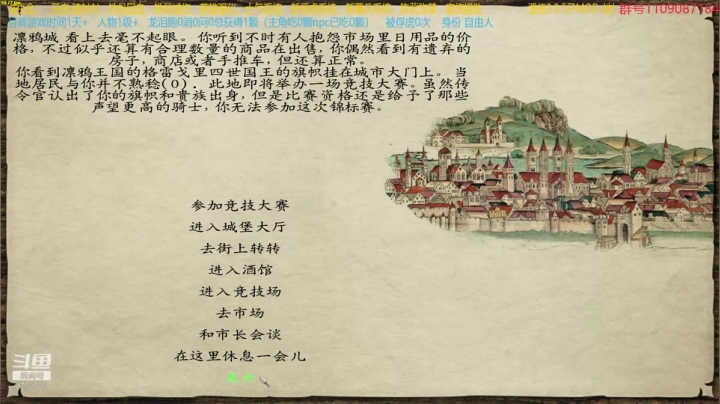 当前游戏时间1天+ 人物1级+ 龙泪跑0消0问0总获得1颗 (主角吃0颗npc已吃0颗) 被俘虏0次 身份 自由人
凛鸦城 看上去毫不起眼。 你听到不时有人抱怨市场里日用品的价
格，不过似乎还算有合理数量的商品在出售，你偶然看到有遗弃的
房子，商店或者手推车，但还算正常。
你看到凛鸦王国的格雷戈里四世国王的旗帜挂在城市大门上。 当
地居民与你并不熟稔(0)， 此地即将举办一场竞技大赛。虽然传
令官认出了你的旗帜和贵族出身，但是比赛资格还是给予了那些
声望更高的骑士，你无法参加这次锦标赛。
参加竞技大赛
进入城堡大厅
去街上转转
进入酒馆
进入竞技场
去市场
和市长会谈
在这里休息一会儿
斗鱼